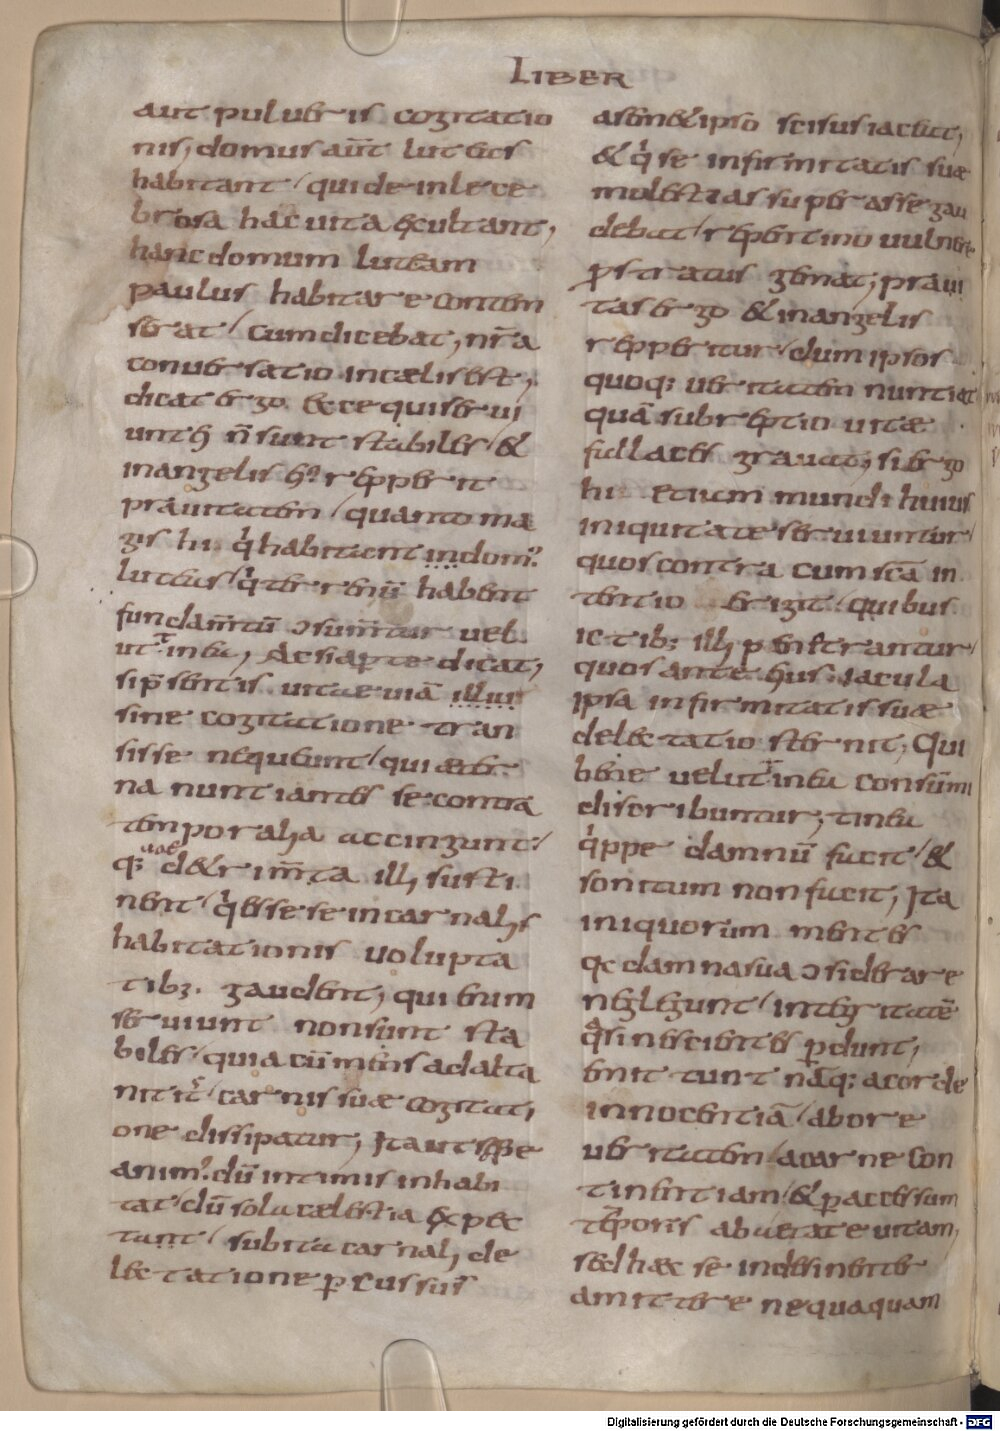 LIBER
aut pulueris cogitatio
nis, domus aut̄ luteas
habitant / qui de inlece
brosa hac uita exultant,
hanc domum luteam
paulus habitare contem
serat / cum dicebat, nr̄a
conuersatio in cælis est,
dicat ergo. ecce qui serui
unt ei n̄ sunt stabiles / &
in angelis repperit
prauitatem / quanto ma
gis hi. q̇ habitant in dom
luteas / q̇ terrenū habent
fundam̄tū ɔsum̄tur uel
ut tinea, Ac si apte dicat,
si p̄sentis uitae uiā illui
sine cogitatione tran
sisse nequeunt / qui æter
na nuntiantes se contra
temporalia accingunt /
q; uae d&rim̄ta illi susti
nent / q̇ esse se in carnalis
habitationis uolupta
tib;. gaudent, qui enim
seruiunt non sunt sta
biles / quia cū mens ad alta
nitit̄ / carnis suæ cogitati
one dissipatur, Ita ut sæpe
anim dū intimis inhabi
tat / dū sola cælestia expec
tant / subita carnali de
lectatione percussus
asem&ipso scisus iaceat,
& q̇ se infirmitatis suæ
molestias superasse gau
debat / repentino uulnere
prostratus gemat, praui
tas ergo & in angelis
repperitur / dum ipsos
quoq; ueritatem nuntiat
quā subreptio uitæ
fallaces grauat, si ergo
hi etiam mundi huius
iniquitate feriuntur /
quos contra eum scā in
tentio erigit / quibus
ictib; illi penetrantur /
quos ante eius iacula
ipsa infirmitatis suæ
delectatio sternit, Qui
bene uelut tinea consūmi
discribuntur, tinea
q̇ppe damnū facit / &
sonitum non facit, Ita
iniquorum mentes
qæ damna sua ɔsiderare
neglegunt / integritatē
q̊si nescientes perdunt,
emittunt nāq; a corde
innocentiā / ab ore
ueritatem / a carne con
tinentiam / & per accessum
tēporis ab ætate uitam,
sed hæc se indesinenter
amittere nequaquam